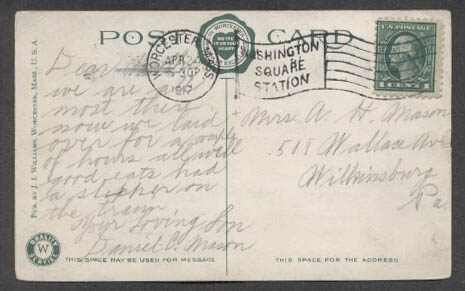 POST CARD
WORCESTER
APR 24
30P
1917
WASHINGTON
SQUARE
STATION
1 CENT 1
Dear
we are
most there
now we laid
over for a couple
of hours all well
good eats had
a sleeper on
the train
Your Loving Son
Daniel C. Mason
Mrs A. H. Mason
518 Wallace Ave
Wilkinsburg
Pa.
PUB. BY J. I. WILLIAMS, WORCESTER, MASS., U.S.A.
QUALITY
W
SERVICE
THIS SPACE MAY BE USED FOR MESSAGE
THIS SPACE FOR THE ADDRESS